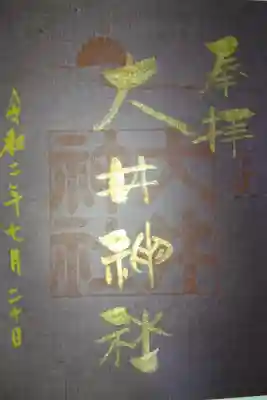 奉拝
大井神社
令和二年七月二十日